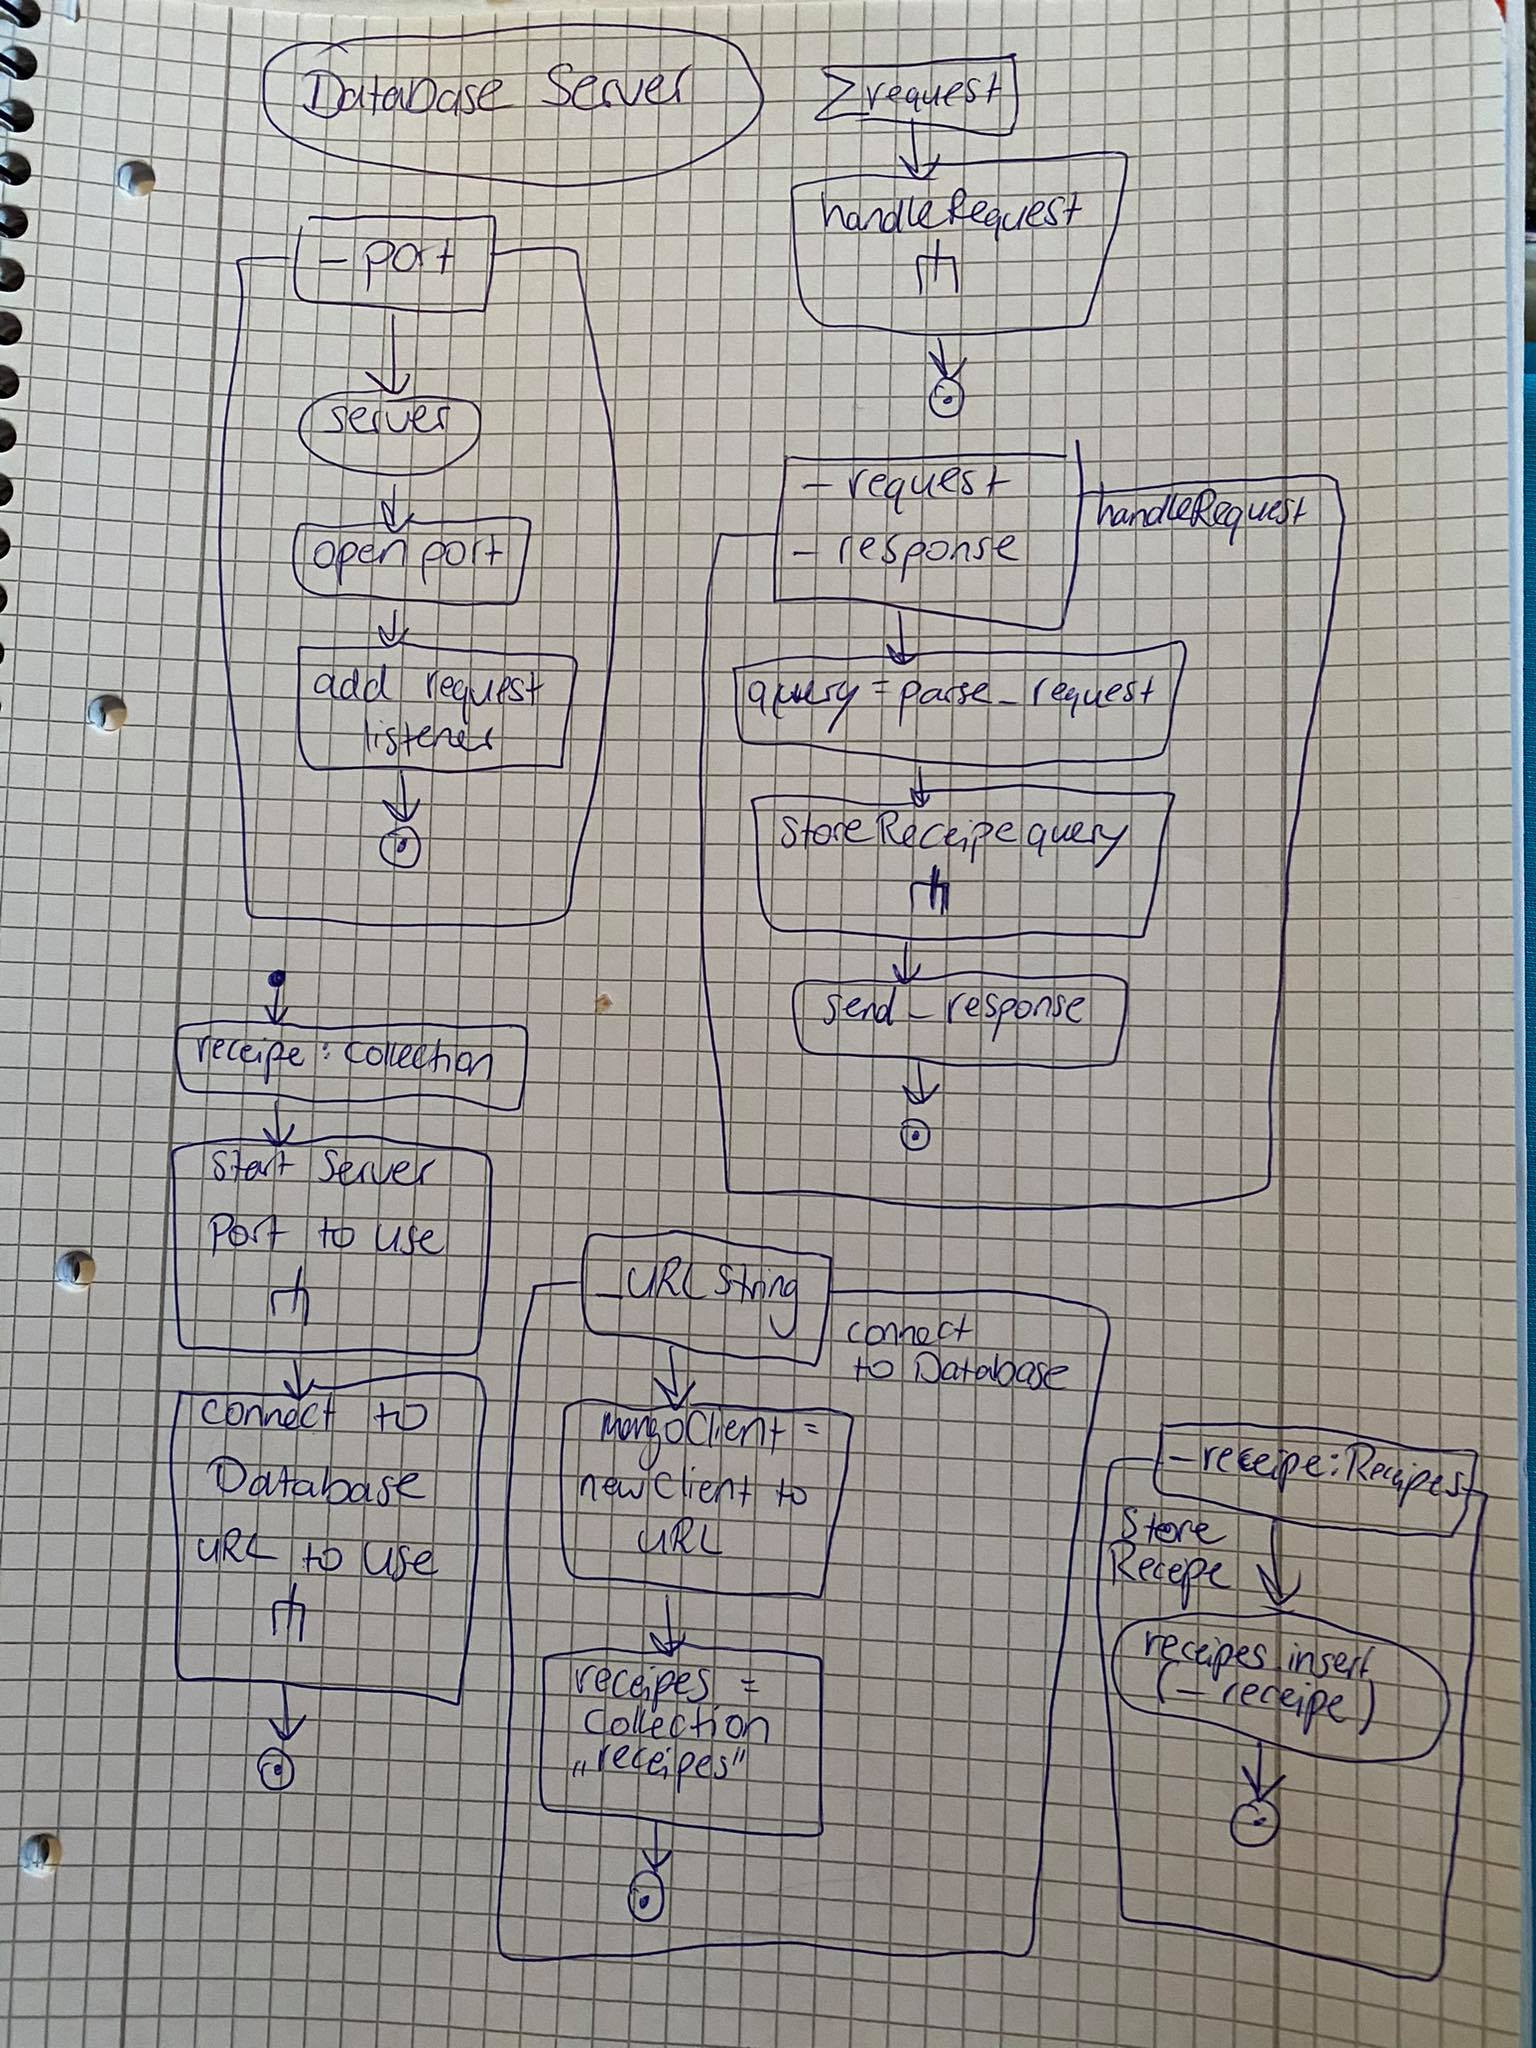 Database Server
request
handleRequest
- port
server
open port
add request
listener
- request
- response
handleRequest
query = parse_request
storeReceipequery
send_response
receipe : Collection
Start Server
Port to use
connect to
Database
URL to use
_URL String
connect
to Database
mongoClient =
newClient to
URL
receipes =
Collection
„receipes"
- receipe: Receipes
Store
Receipe
receipes insert
(- receipe)